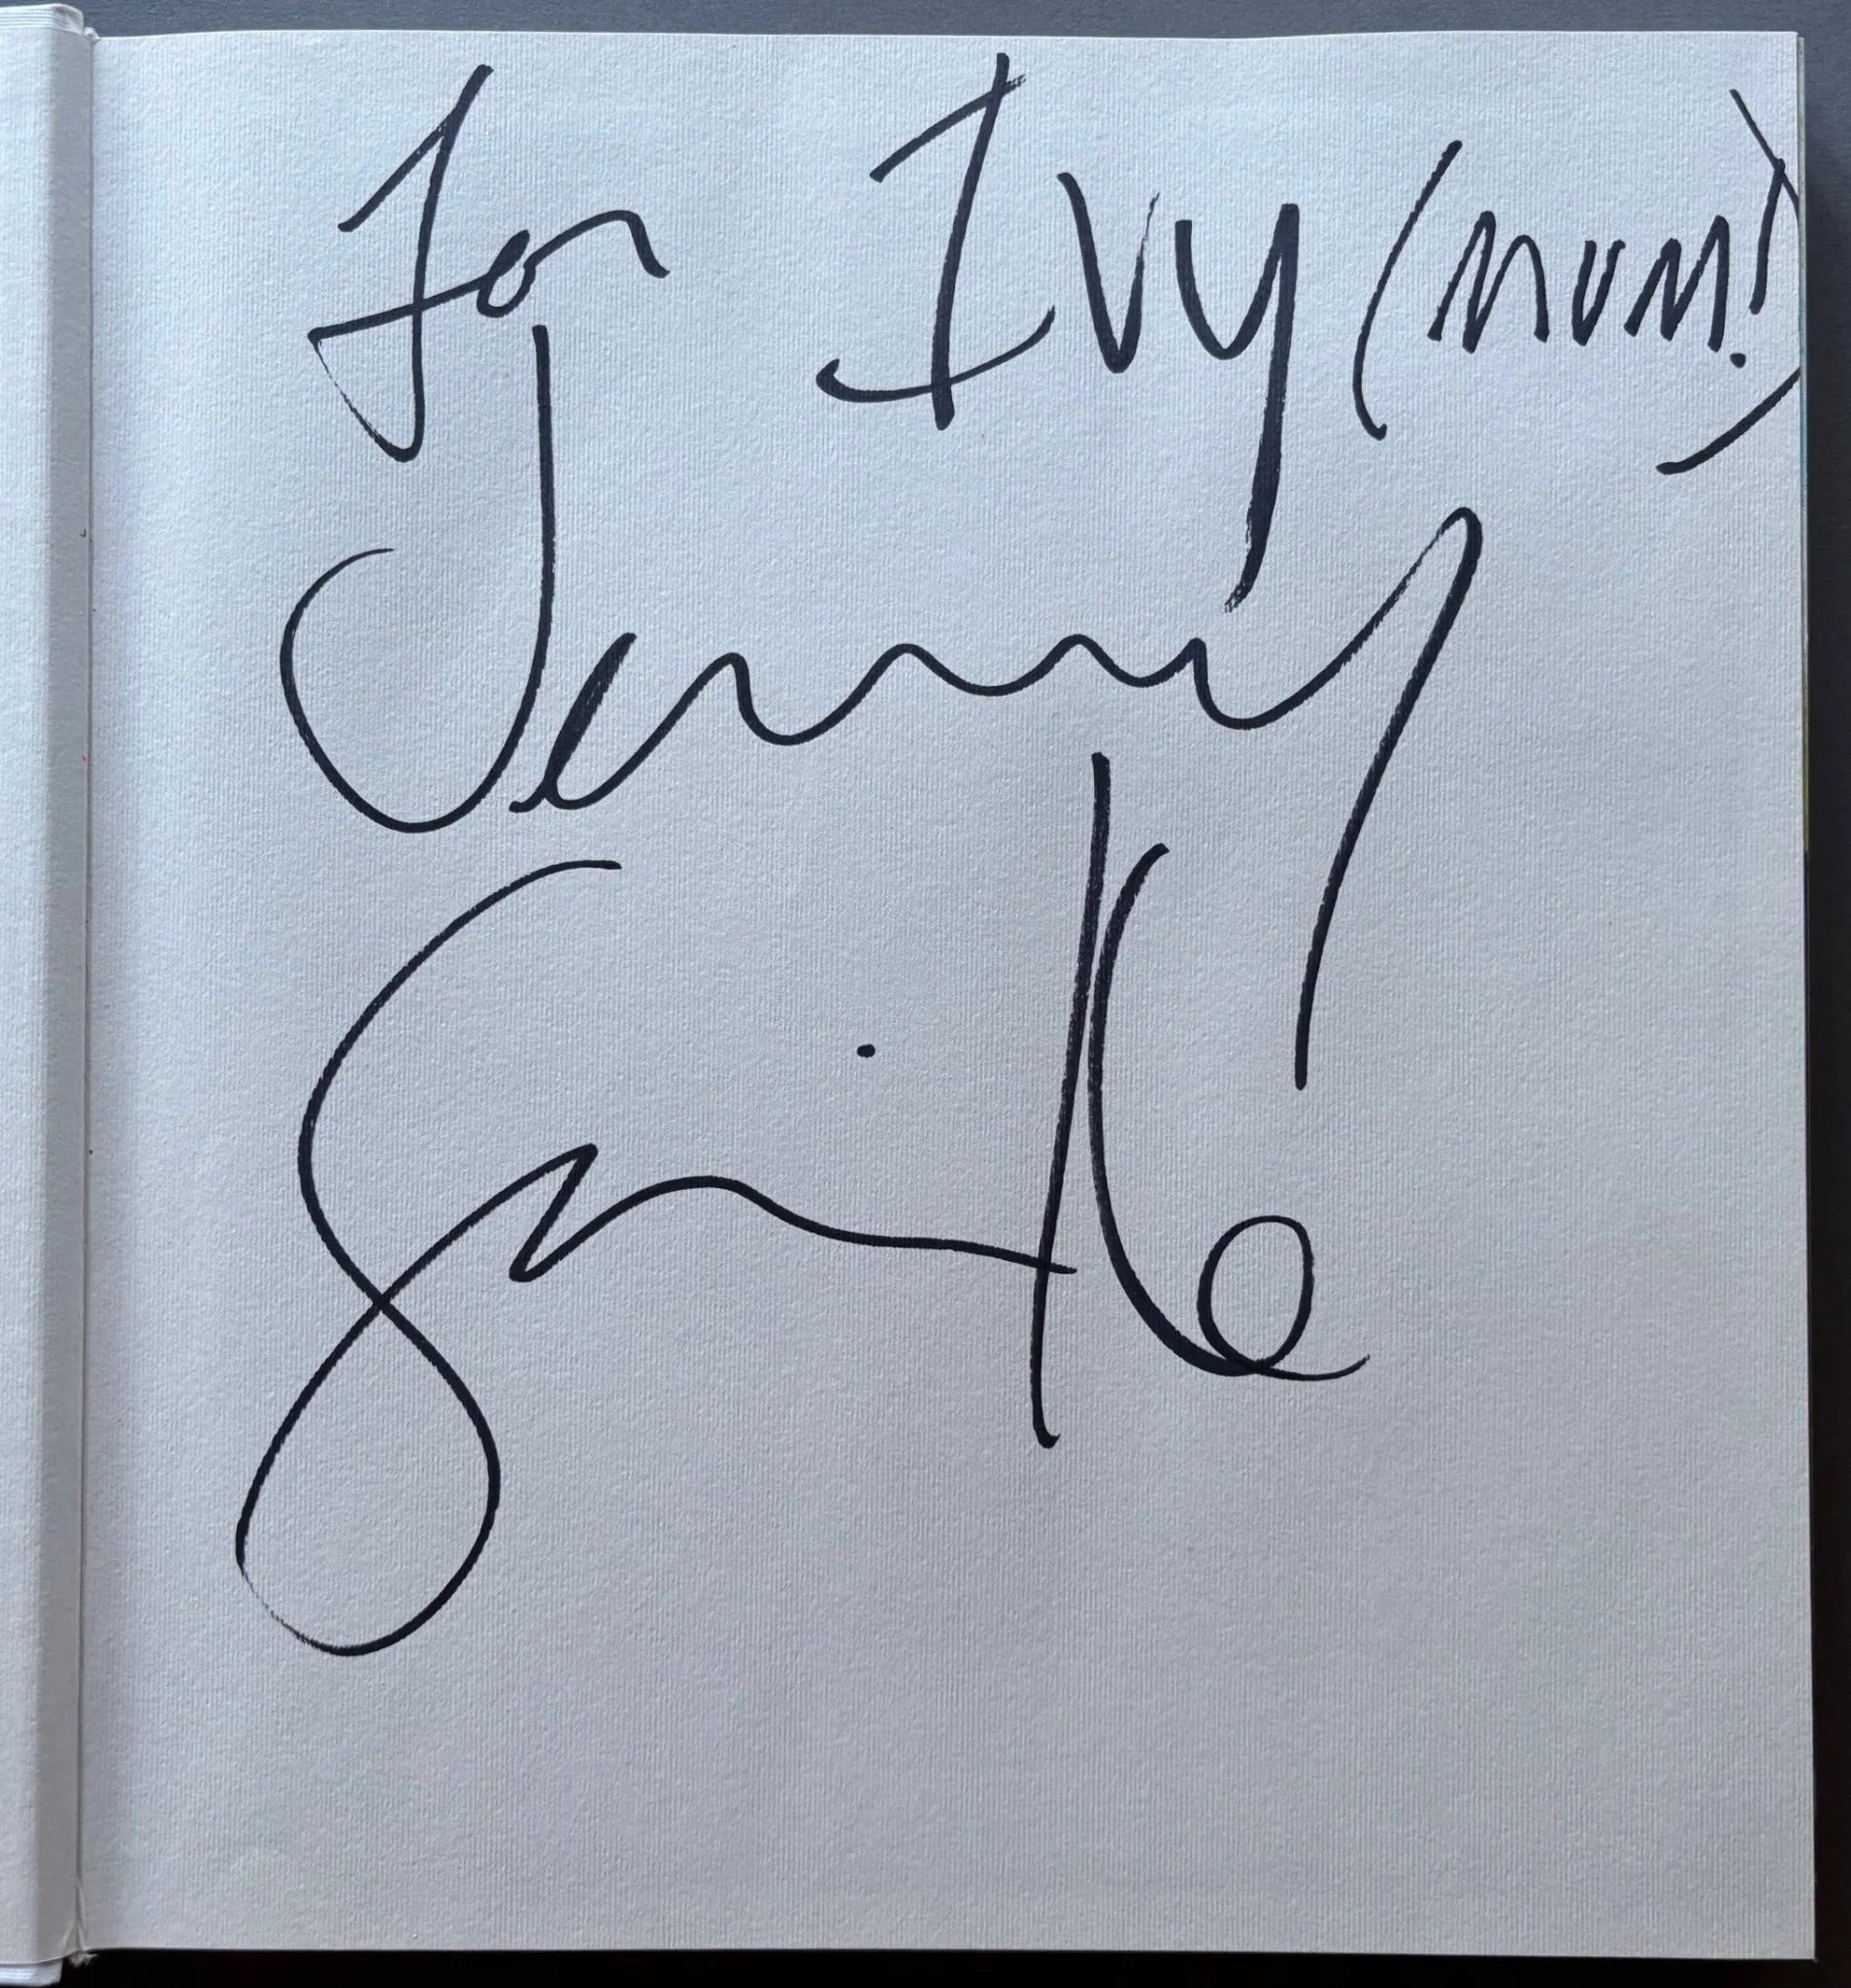 For Ivy (MUM!)
Jenny
Saville